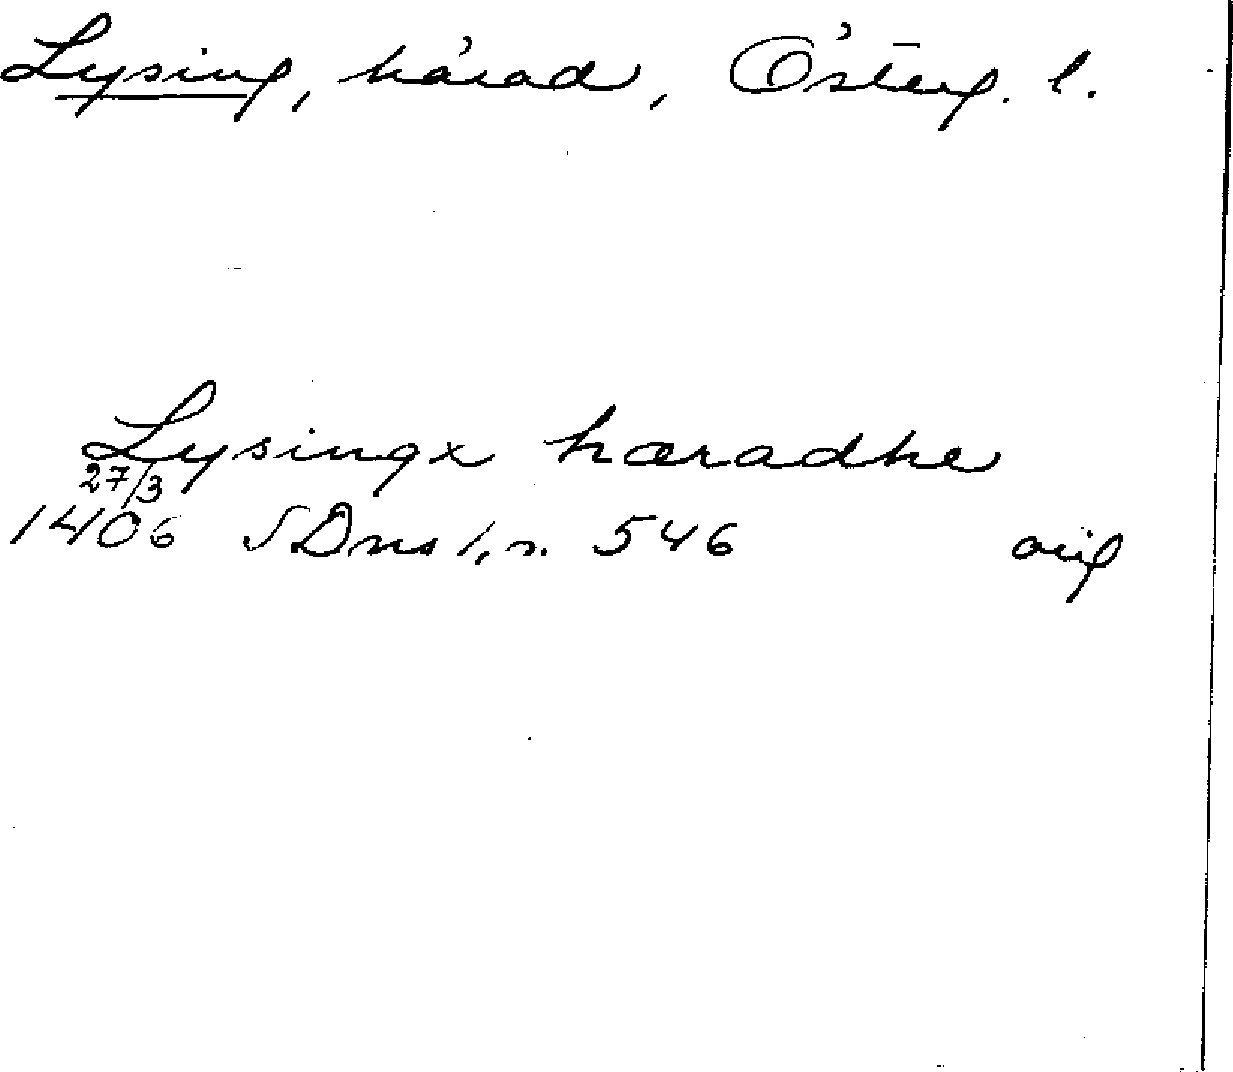 Lysing, härad, Österg. l.
Lysingx hæradhe
27/3
1406 SDns 1, n. 546 orig